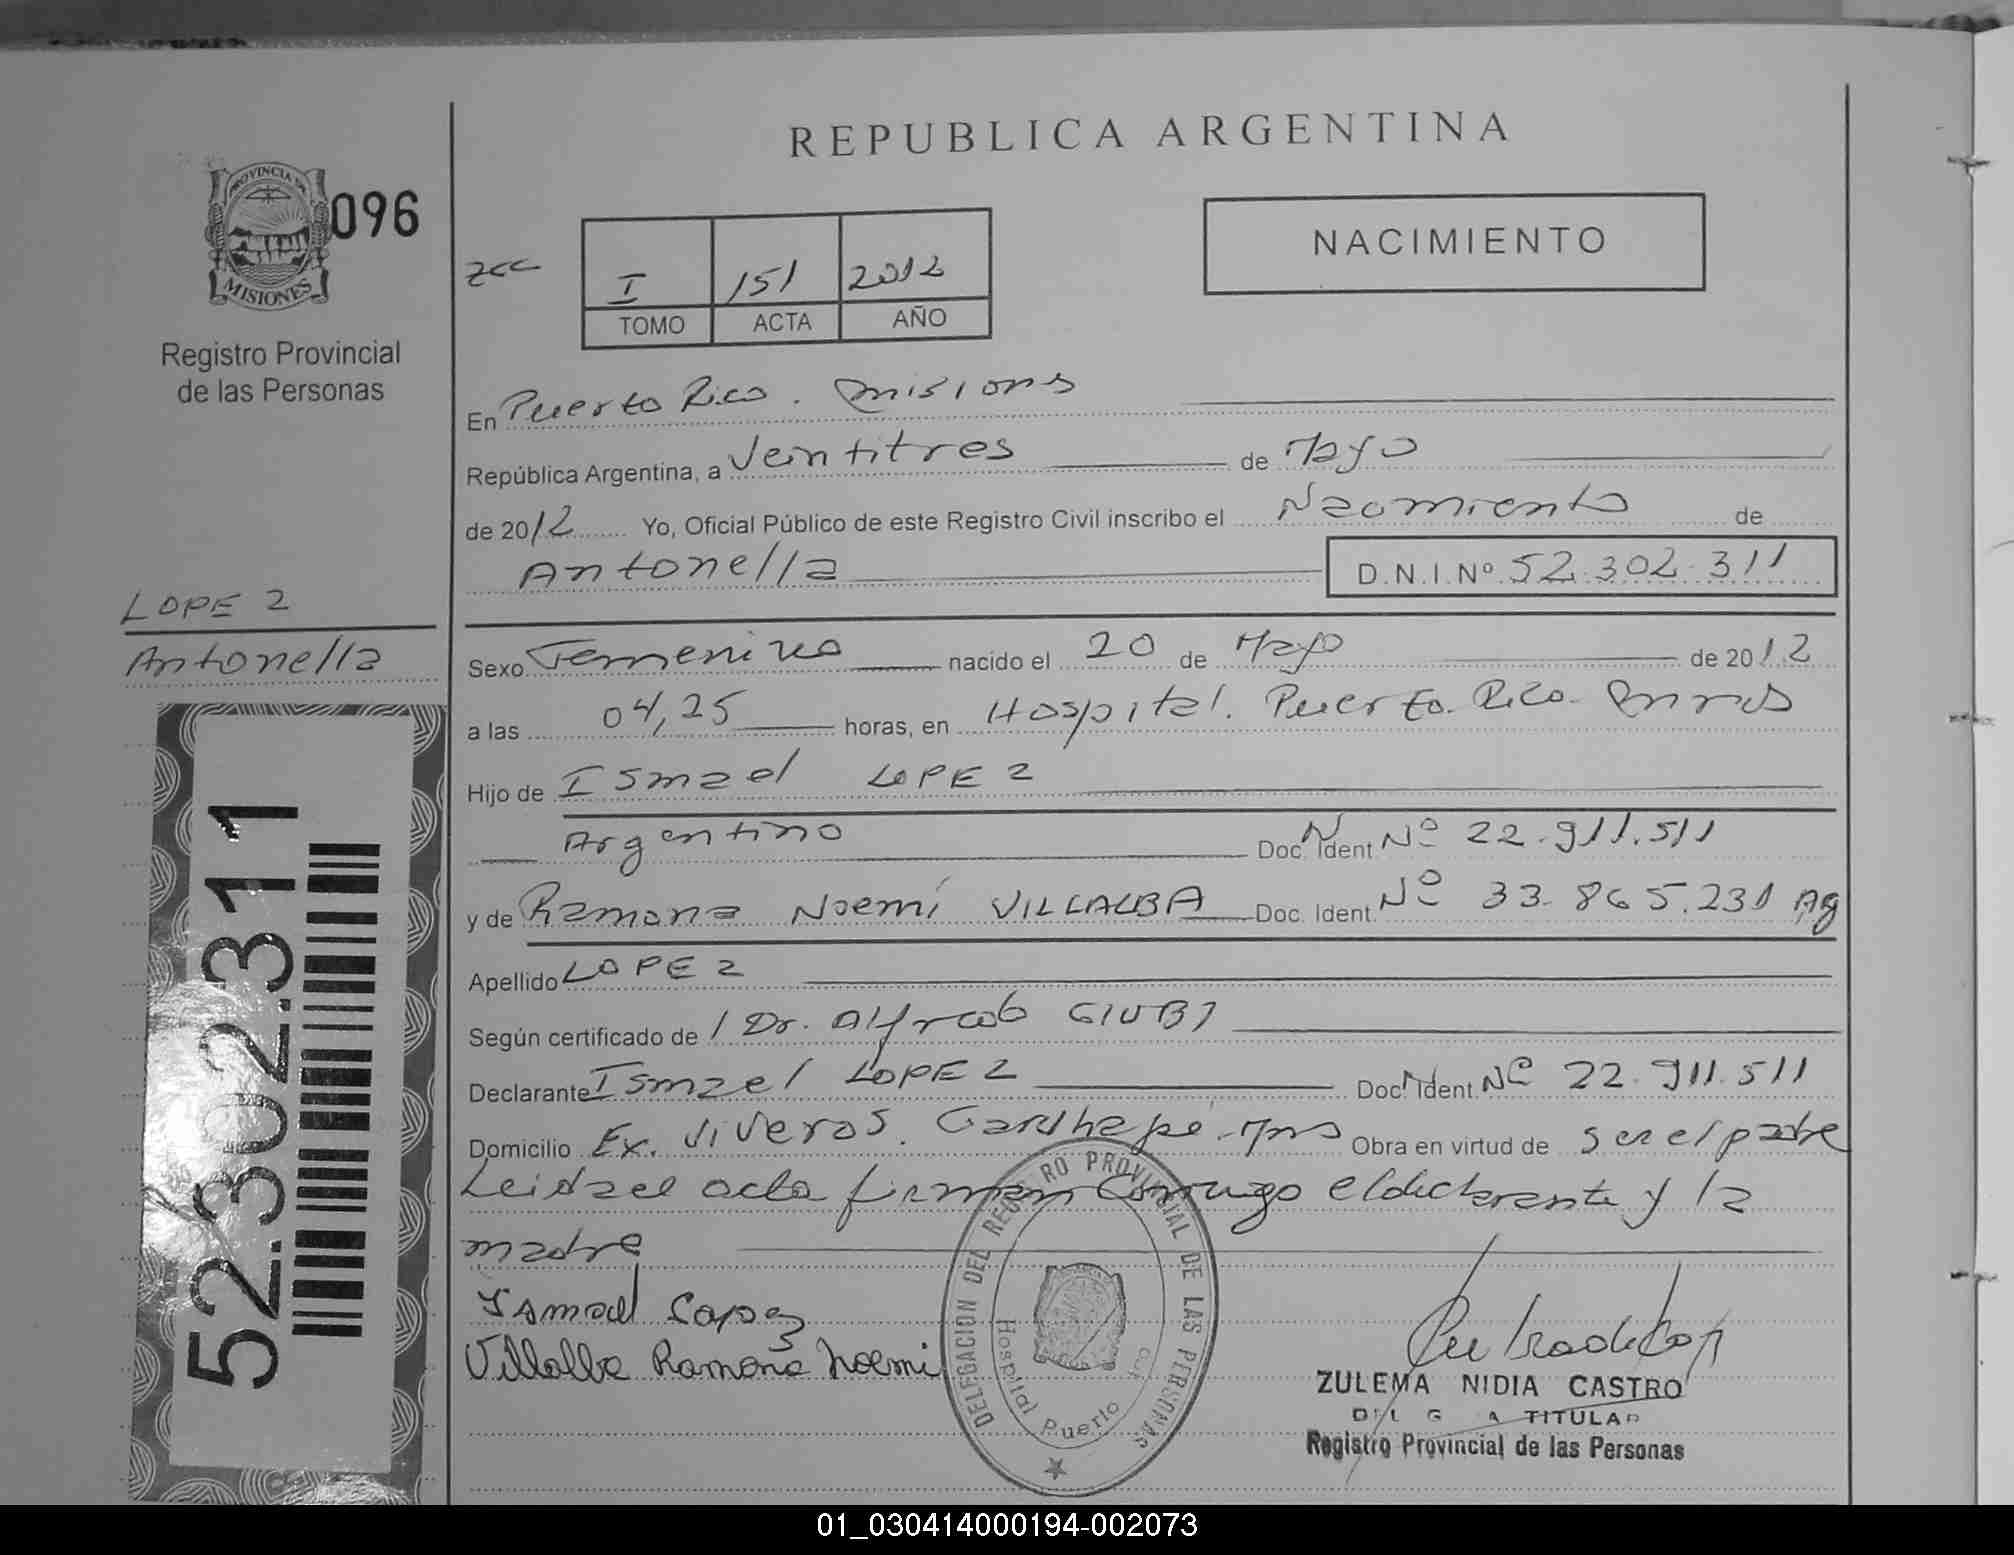 REPUBLICA ARGENTINA
PROVINCIA DE
MISIONES
096
Registro Provincial
de las Personas
NACIMIENTO
I 151 2012
TOMO ACTA AÑO
En Puerto Rico. Misiones
República Argentina, a Veintitres de Mayo
de 2012 Yo, Oficial Público de este Registro Civil inscribo el Nacimiento de
Antonella D.N.I.Nº 52.302.311
LOPEZ
Antonella
Sexo Femenino nacido el 20 de Mayo de 2012
a las 04,25 horas, en Hospital. Puerto. Rico.
Hijo de Ismael LOPEZ
Argentino Doc. Ident. Nº 22.911.511
y de Ramona Noemí VILLALBA Doc. Ident. Nº 33.865.231 Ag
Apellido LOPEZ
Según certificado de Dr. Alfredo GIUBI
Declarante Ismael LOPEZ Doc. Ident. Nº 22.911.511
Domicilio Ex. Viveros. Garuhapé. Mns Obra en virtud de ser el padre
Leida el acta firman conmigo el declarante y la
madre
Ismael Lopez
Villalba Ramona Noemi
DELEGACION DEL REGISTRO PROVINCIAL DE LAS PERSONAS
Hospital Puerto Rico
ZULEMA NIDIA CASTRO
DELEGADA TITULAR
Registro Provincial de las Personas
52.302.311
01_030414000194-002073